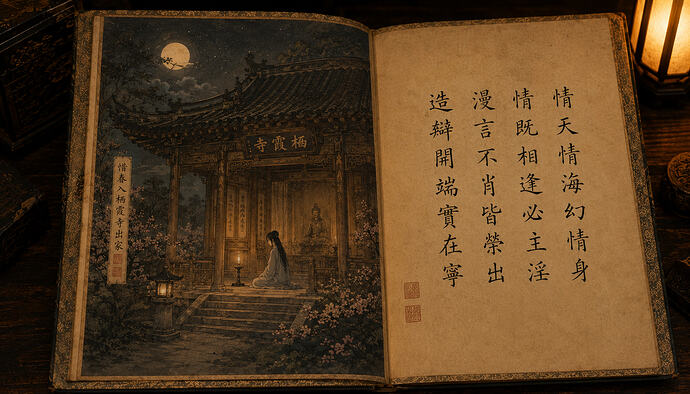 情天情海幻情身
情既相逢必主淫
漫言不肖皆榮出
造辯開端實在寧
栖霞寺
惜春入栖霞寺出家